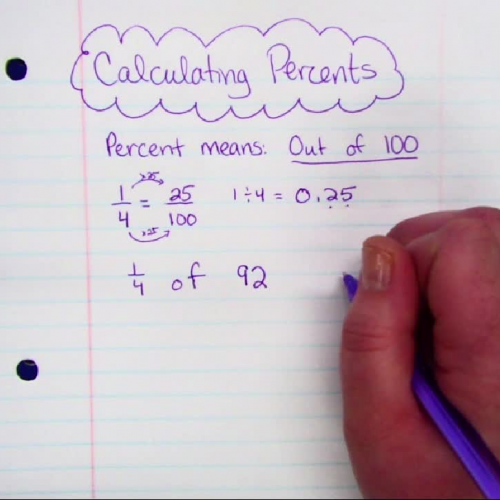 Calculating Percents
Percent means: Out of 100
×25
1/4 = 25/100 1 ÷ 4 = 0.25
×25
1/4 of 92